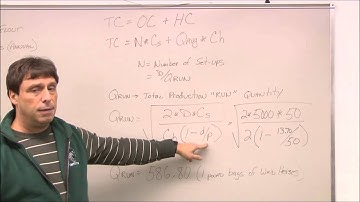 FLOUR
(ANNUAL)
TC = OC + HC
TC = N*Cs + QAvg * Ch
N = Number of Set-ups
= D/QRUN
QRUN → Total Production "RUN" Quantity
QRUN = √ 2*D*Cs / Ch(1- d/p) = √ 2*5000*50 / 2(1- /50)
QRUN = 586.80 (1 pound bags of